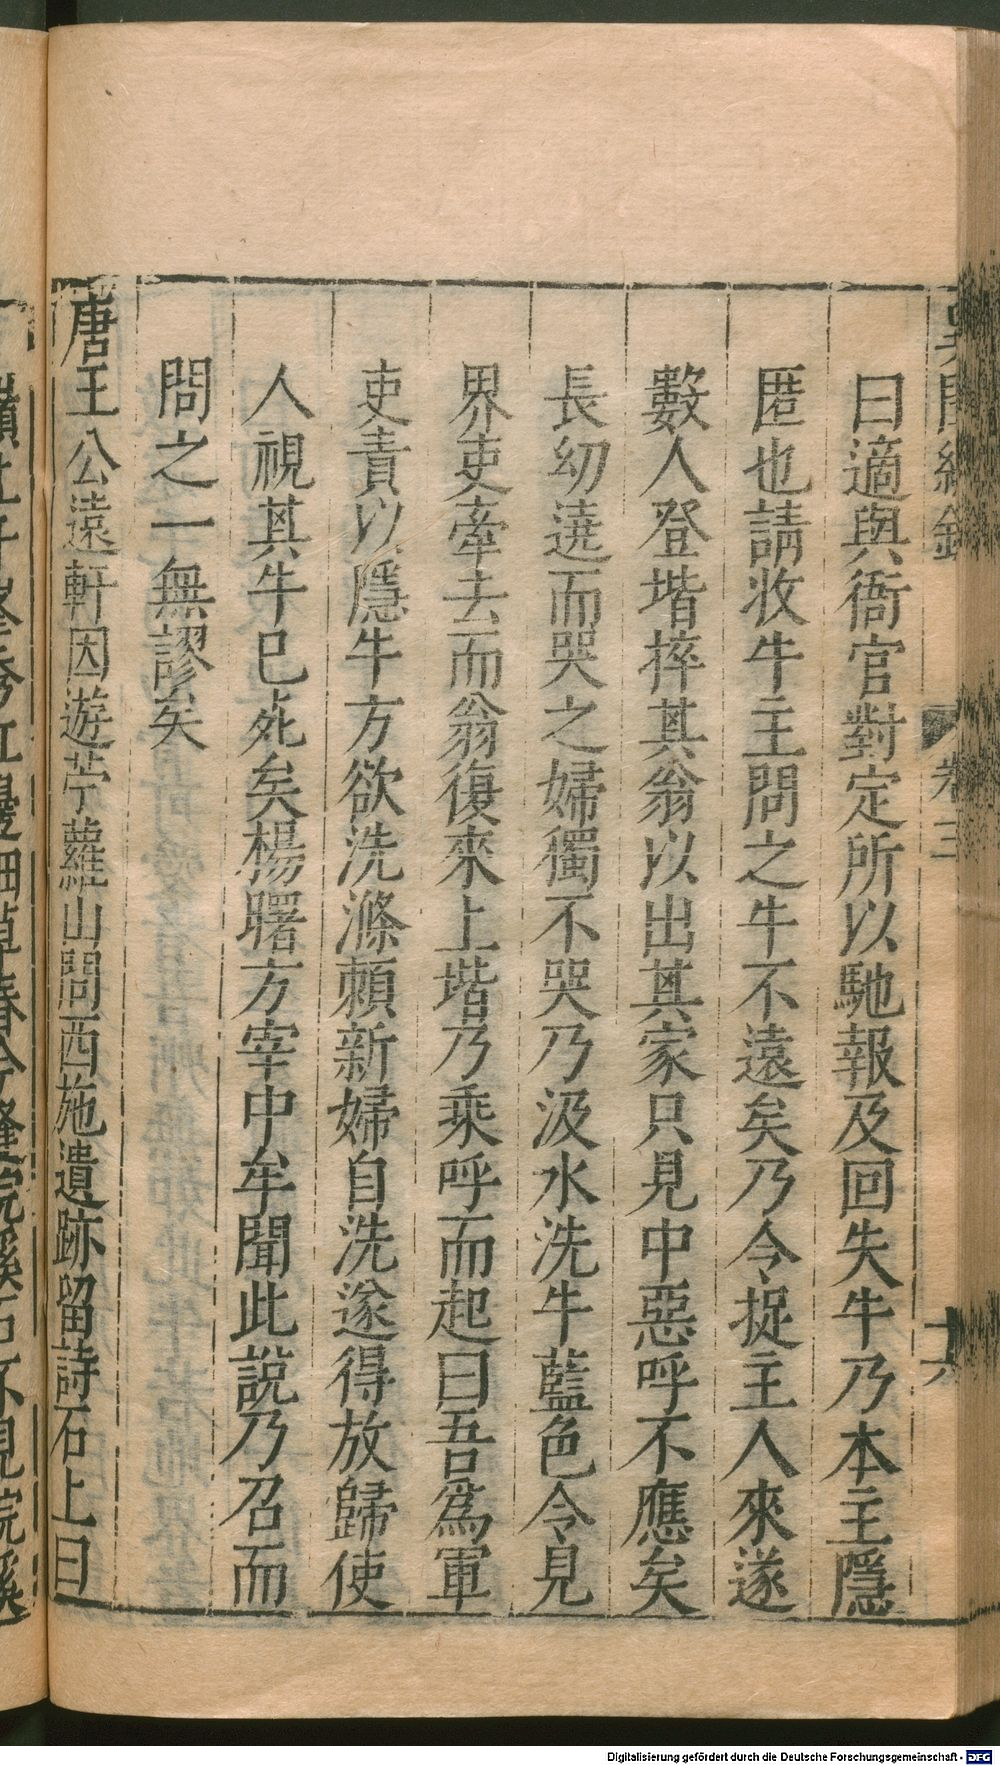 卷三
十六
曰適與衙官對定所以馳報及回失牛乃本主隱
匿也請收牛主問之牛不遠矣乃令捉主人來遂
數人登堦捽其翁以出其家只見中惡呼不應矣
長幼遶而哭之婦獨不哭乃汲水洗牛藍色令見
界吏牽去而翁復來上堦乃乘呼而起曰吾爲軍
吏責以隱牛方欲洗滌頼新婦自洗遂得放歸使
人視其牛已死矣楊曙方宰中牟聞此説乃召而
問之一無謬矣
唐王公遠軒因遊苧蘿山問西施遺跡留詩石上曰
嶺上千峯秀江邊細草春今逢浣溪石不見浣溪
Digitalisierung gefördert durch die Deutsche Forschungsgemeinschaft - DFG